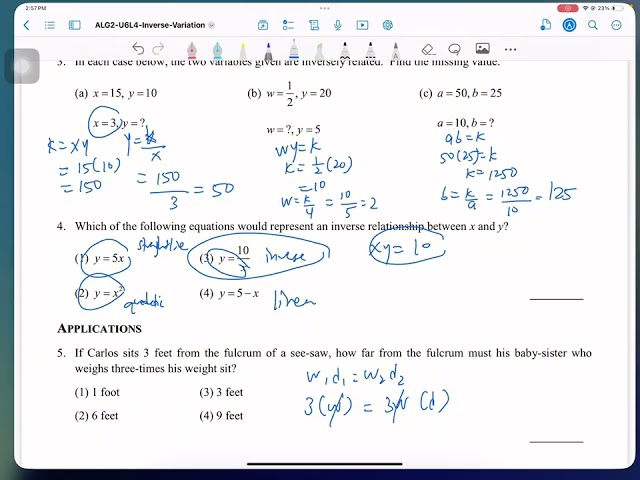 2:57 PM
23%
ALG2-U6L4-Inverse-Variation
3. In each case below, the two variables given are inversely related. Find the missing value.
(a) x=15, y=10 (b) w=1/2, y=20 (c) a=50, b=25
x=3, y=? w=?, y=5 a=10, b=?
k = xy y = k/x wy = k ab = k
= 15(10) = 150/3 = 50 k = 1/2 (20) 50(25) = k
= 150 = 10 k = 1250
w = k/y = 10/5 = 2 b = k/a = 1250/10 = 125
4. Which of the following equations would represent an inverse relationship between x and y?
(1) y=5x (3) y=10/x inverse xy = 10
(2) y=x² quadratic (4) y=5-x linear
APPLICATIONS
5. If Carlos sits 3 feet from the fulcrum of a see-saw, how far from the fulcrum must his baby-sister who
weighs three-times his weight sit?
(1) 1 foot (3) 3 feet w₁d₁ = w₂d₂
(2) 6 feet (4) 9 feet 3(w) = 3w (d)